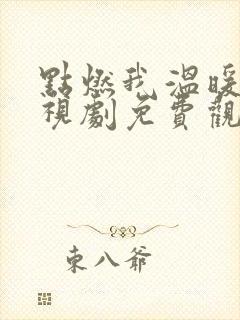 點燃我溫暖
視劇免費觀
東八爺